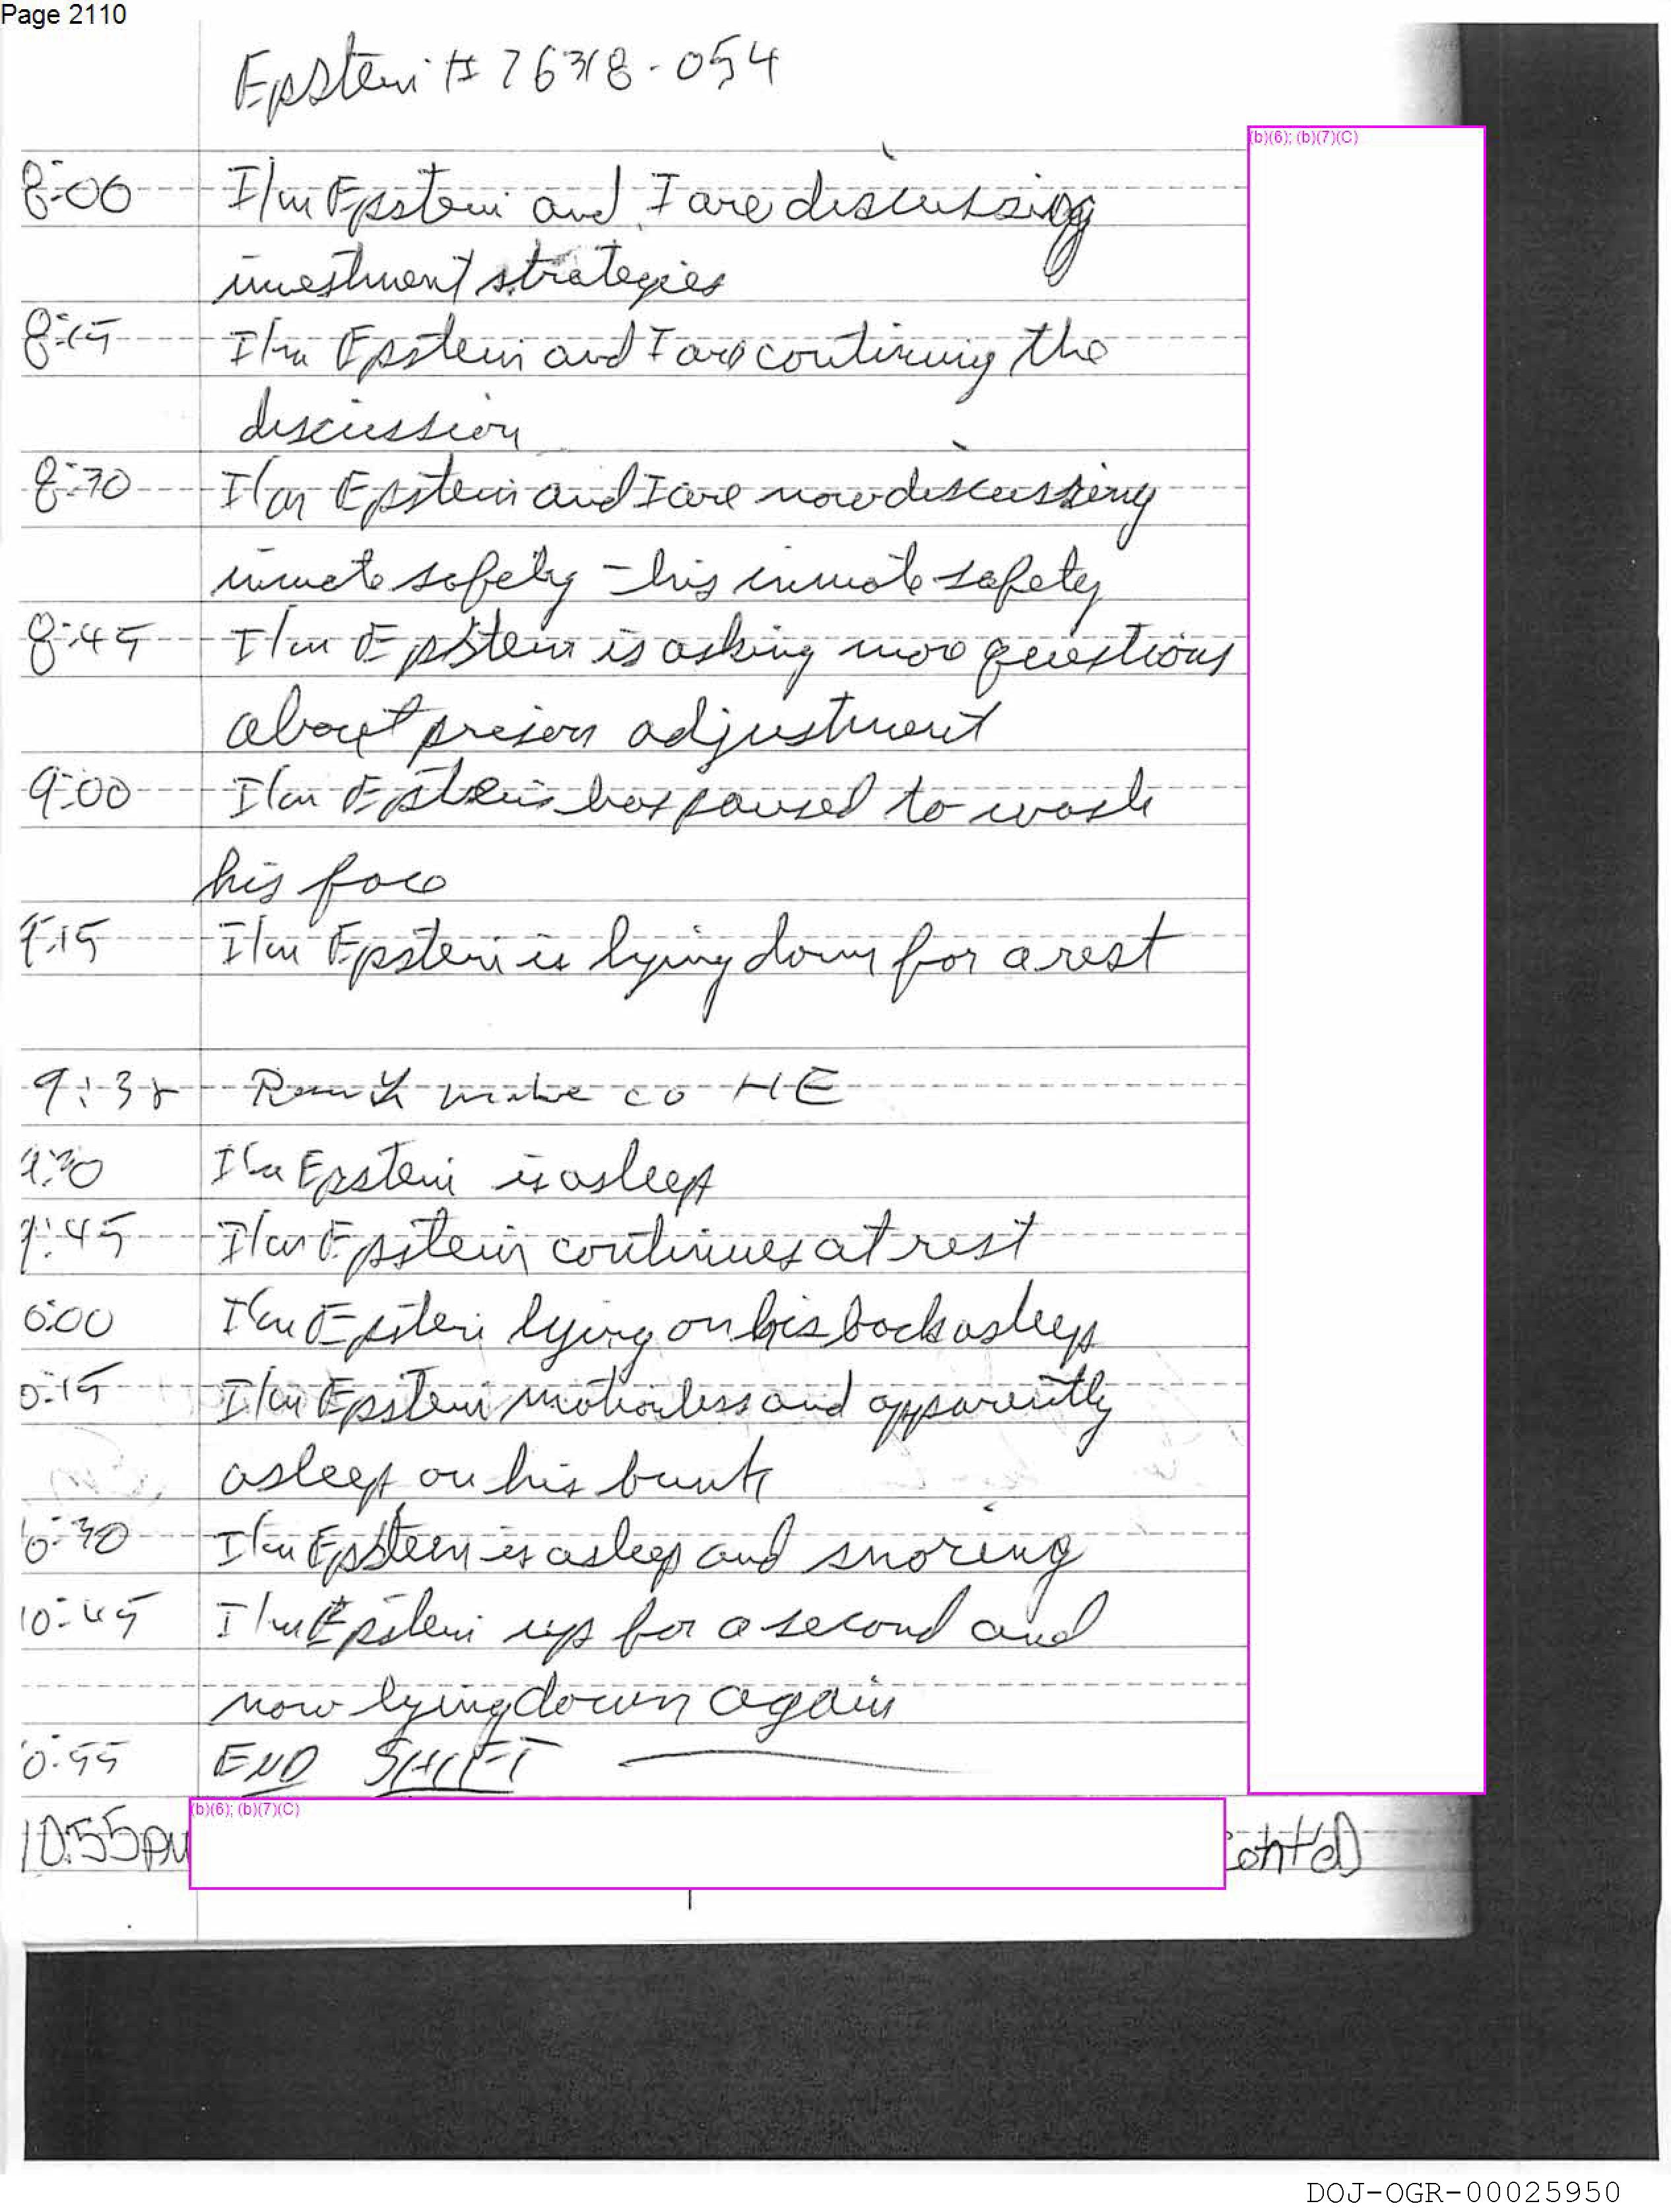 Page 2110
Epstein # 76318-054
(b)(6); (b)(7)(C)
8:00 I/m Epstein and I are discussing
investment strategies
8:15 I/m Epstein and I are continuing the
discussion
8:30 I/m Epstein and I are now discussing
inmate safety - his inmate safety
8:45 I/m Epstein is asking more questions
about prison adjustment
9:00 I/m Epstein has paused to wash
his face
9:15 I/m Epstein is lying down for a rest
9:38 make co
9:30 I/m Epstein is asleep
9:45 I/m Epstein continues at rest
0:00 I/m Epstein lying on his back asleep
0:15 I/m Epstein motionless and apparently
asleep on his bunk
10:30 I/m Epstein is asleep and snoring
10:45 I/m Epstein up for a second and
now lying down again
0:55 END SHIFT
(b)(6); (b)(7)(C)
10:55pm cont'd
DOJ-OGR-00025950